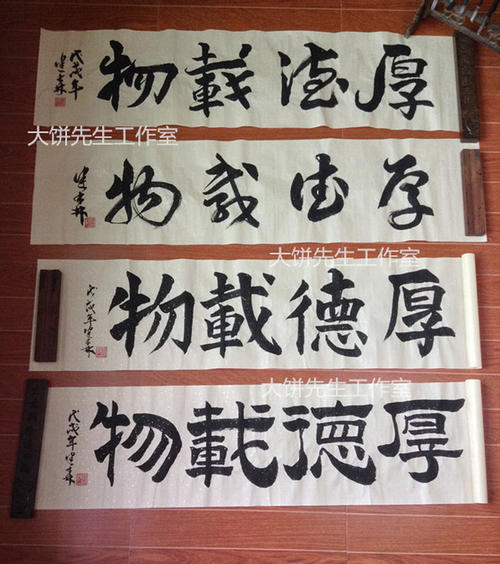 厚德載物
戊戌年
大饼先生工作室
厚德載物
大饼先生工作室
厚德載物
戊戌年
大饼先生工作室
厚德載物
戊戌年